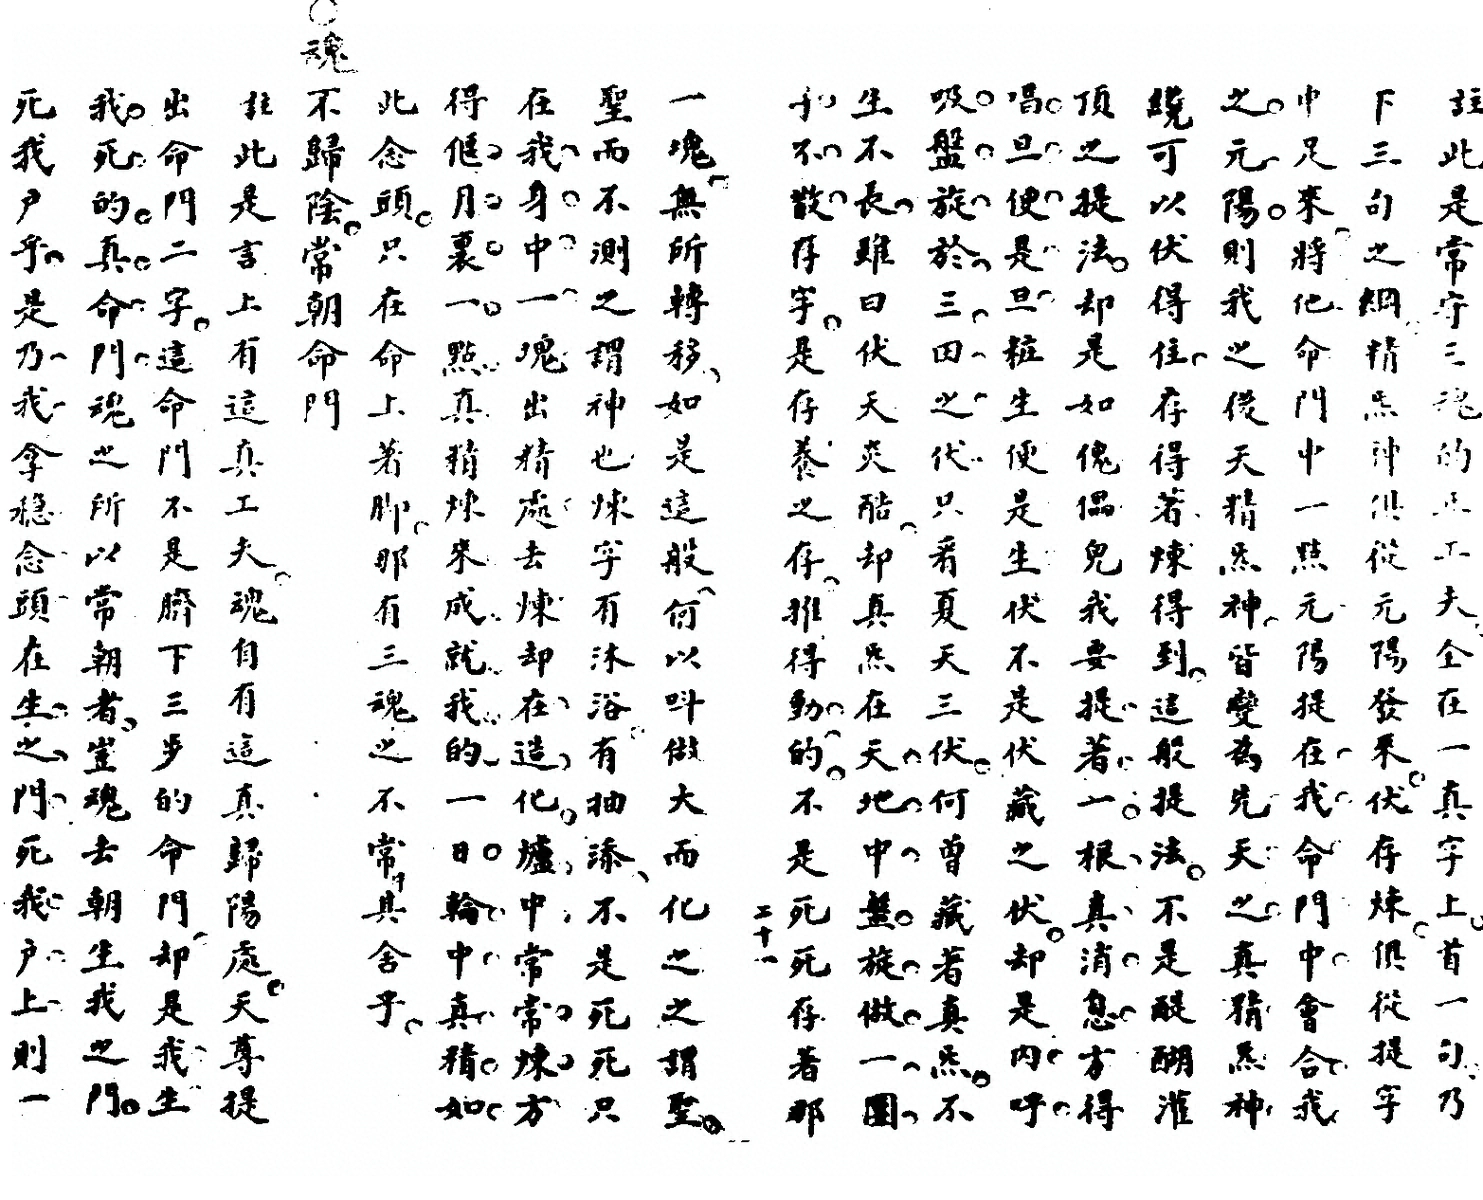 註此是常守三魂的正工夫全在一真字上首一句乃
下三句之綱精炁神俱從元陽發來伏存煉俱從提字
中足來將他命門中一點元陽提在我命門中會合我
之元陽則我之後天精炁神皆變為先天之真精炁神
繞可以伏得住存得著煉得到這般提法不是醍醐灌
頂之提法却是如傀儡兒我要提著一根真消息方得
唱旦便是旦粧生便是生伏不是伏藏之伏却是內呼
吸盤旋於三田之伏只看夏天三伏何曾藏著真炁不
生不長雖曰伏天炎酷却真炁在天地中盤旋做一團
子不散存字是存養之存推得動的不是死死存著那
二十一
一塊無所轉移如是這般何以呌做大而化之之謂聖
聖而不測之謂神也煉字有沐浴有抽添不是死死只
在我身中一塊出精處去煉却在造化爐中常常煉方
得偃月裏一點真精煉來成就我的一日輪中真精如
此念頭只在命上著脚那有三魂之不常其舍乎
○魂不歸陰常朝命門
註此是言上有這真工夫魂自有這真歸陽處天尊提
出命門二字這命門不是臍下三步的命門却是我生
我死的真命門魂之所以常朝者豈魂去朝生我之門
死我戶乎是乃我拿穩念頭在生之門死我戶上則一